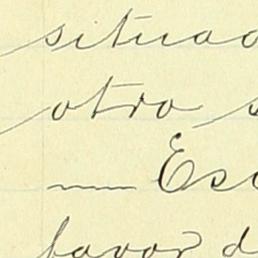 situad
otro s
— Esc
favor de